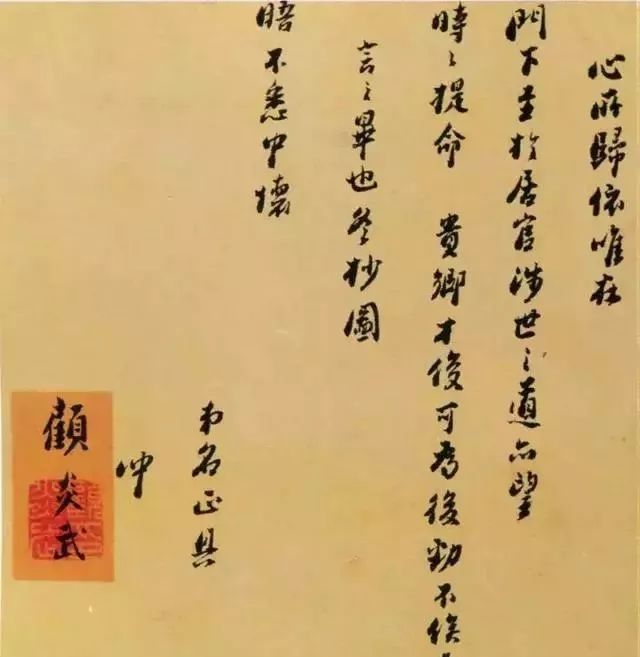 心所歸依唯在
門下至於居官涉世之道亦望
時々提命 貴鄉才俊可為後勁不俟
言之畢也冬杪圖
晤不悉中懷
弟名正具
仲
顧炎武